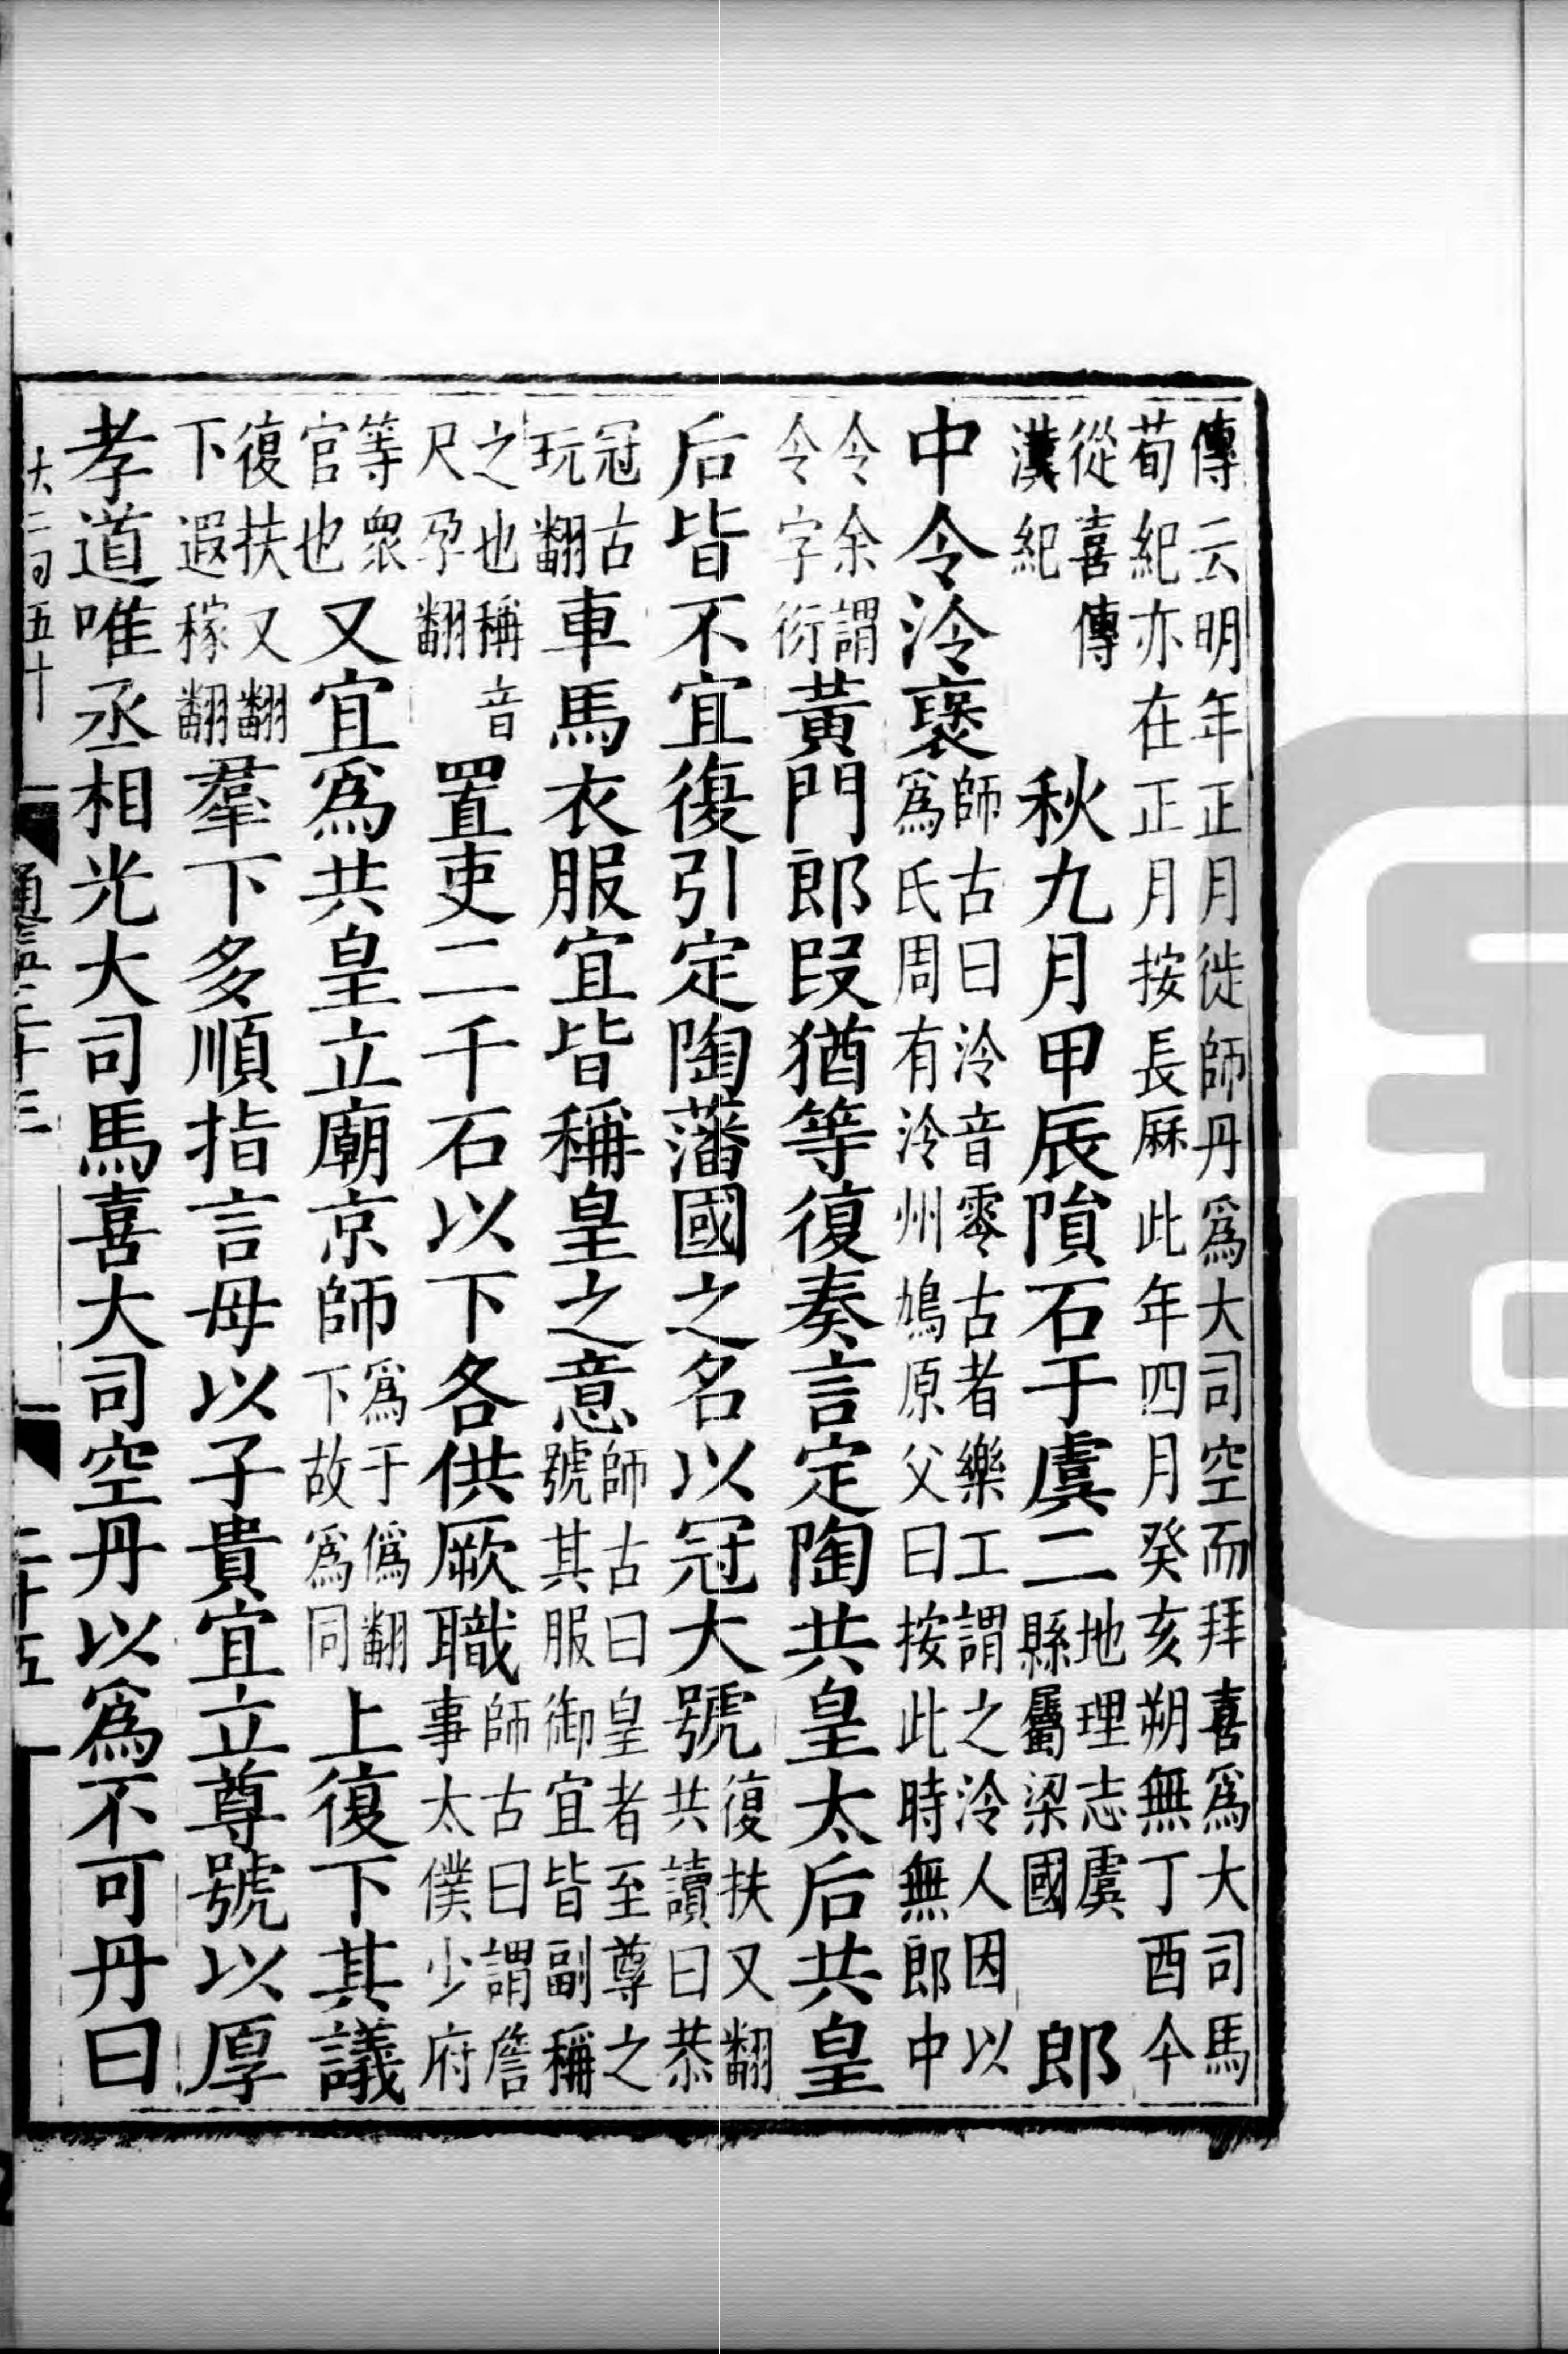 傳云明年正月徙師丹爲大司空而拜喜爲大司馬
荀紀亦在正月按長厤此年四月癸亥朔無丁酉今
從喜傳漢紀秋九月甲辰隕石于虞二地理志虞縣屬梁國郎
中令泠褒師古曰泠音零古者樂工謂之泠人因以爲氏周有泠州鳩原父曰按此時無郎中
令余謂令字衍黃門郎段猶等復奏言定陶共皇太后共皇
后皆不宜復引定陶藩國之名以冠大號復扶又翻共讀曰恭
冠古玩翻車馬衣服宜皆稱皇之意師古曰皇者至尊之號其服御宜皆副稱
之也稱音尺孕翻置吏二千石以下各供厥職師古曰謂詹事太僕少府
等衆官也又宜爲共皇立廟京師爲于僞翻下故爲同上復下其議
復扶又翻下遐稼翻羣下多順指言母以子貴宜立尊號以厚
孝道唯丞相光大司馬喜大司空丹以爲不可丹曰